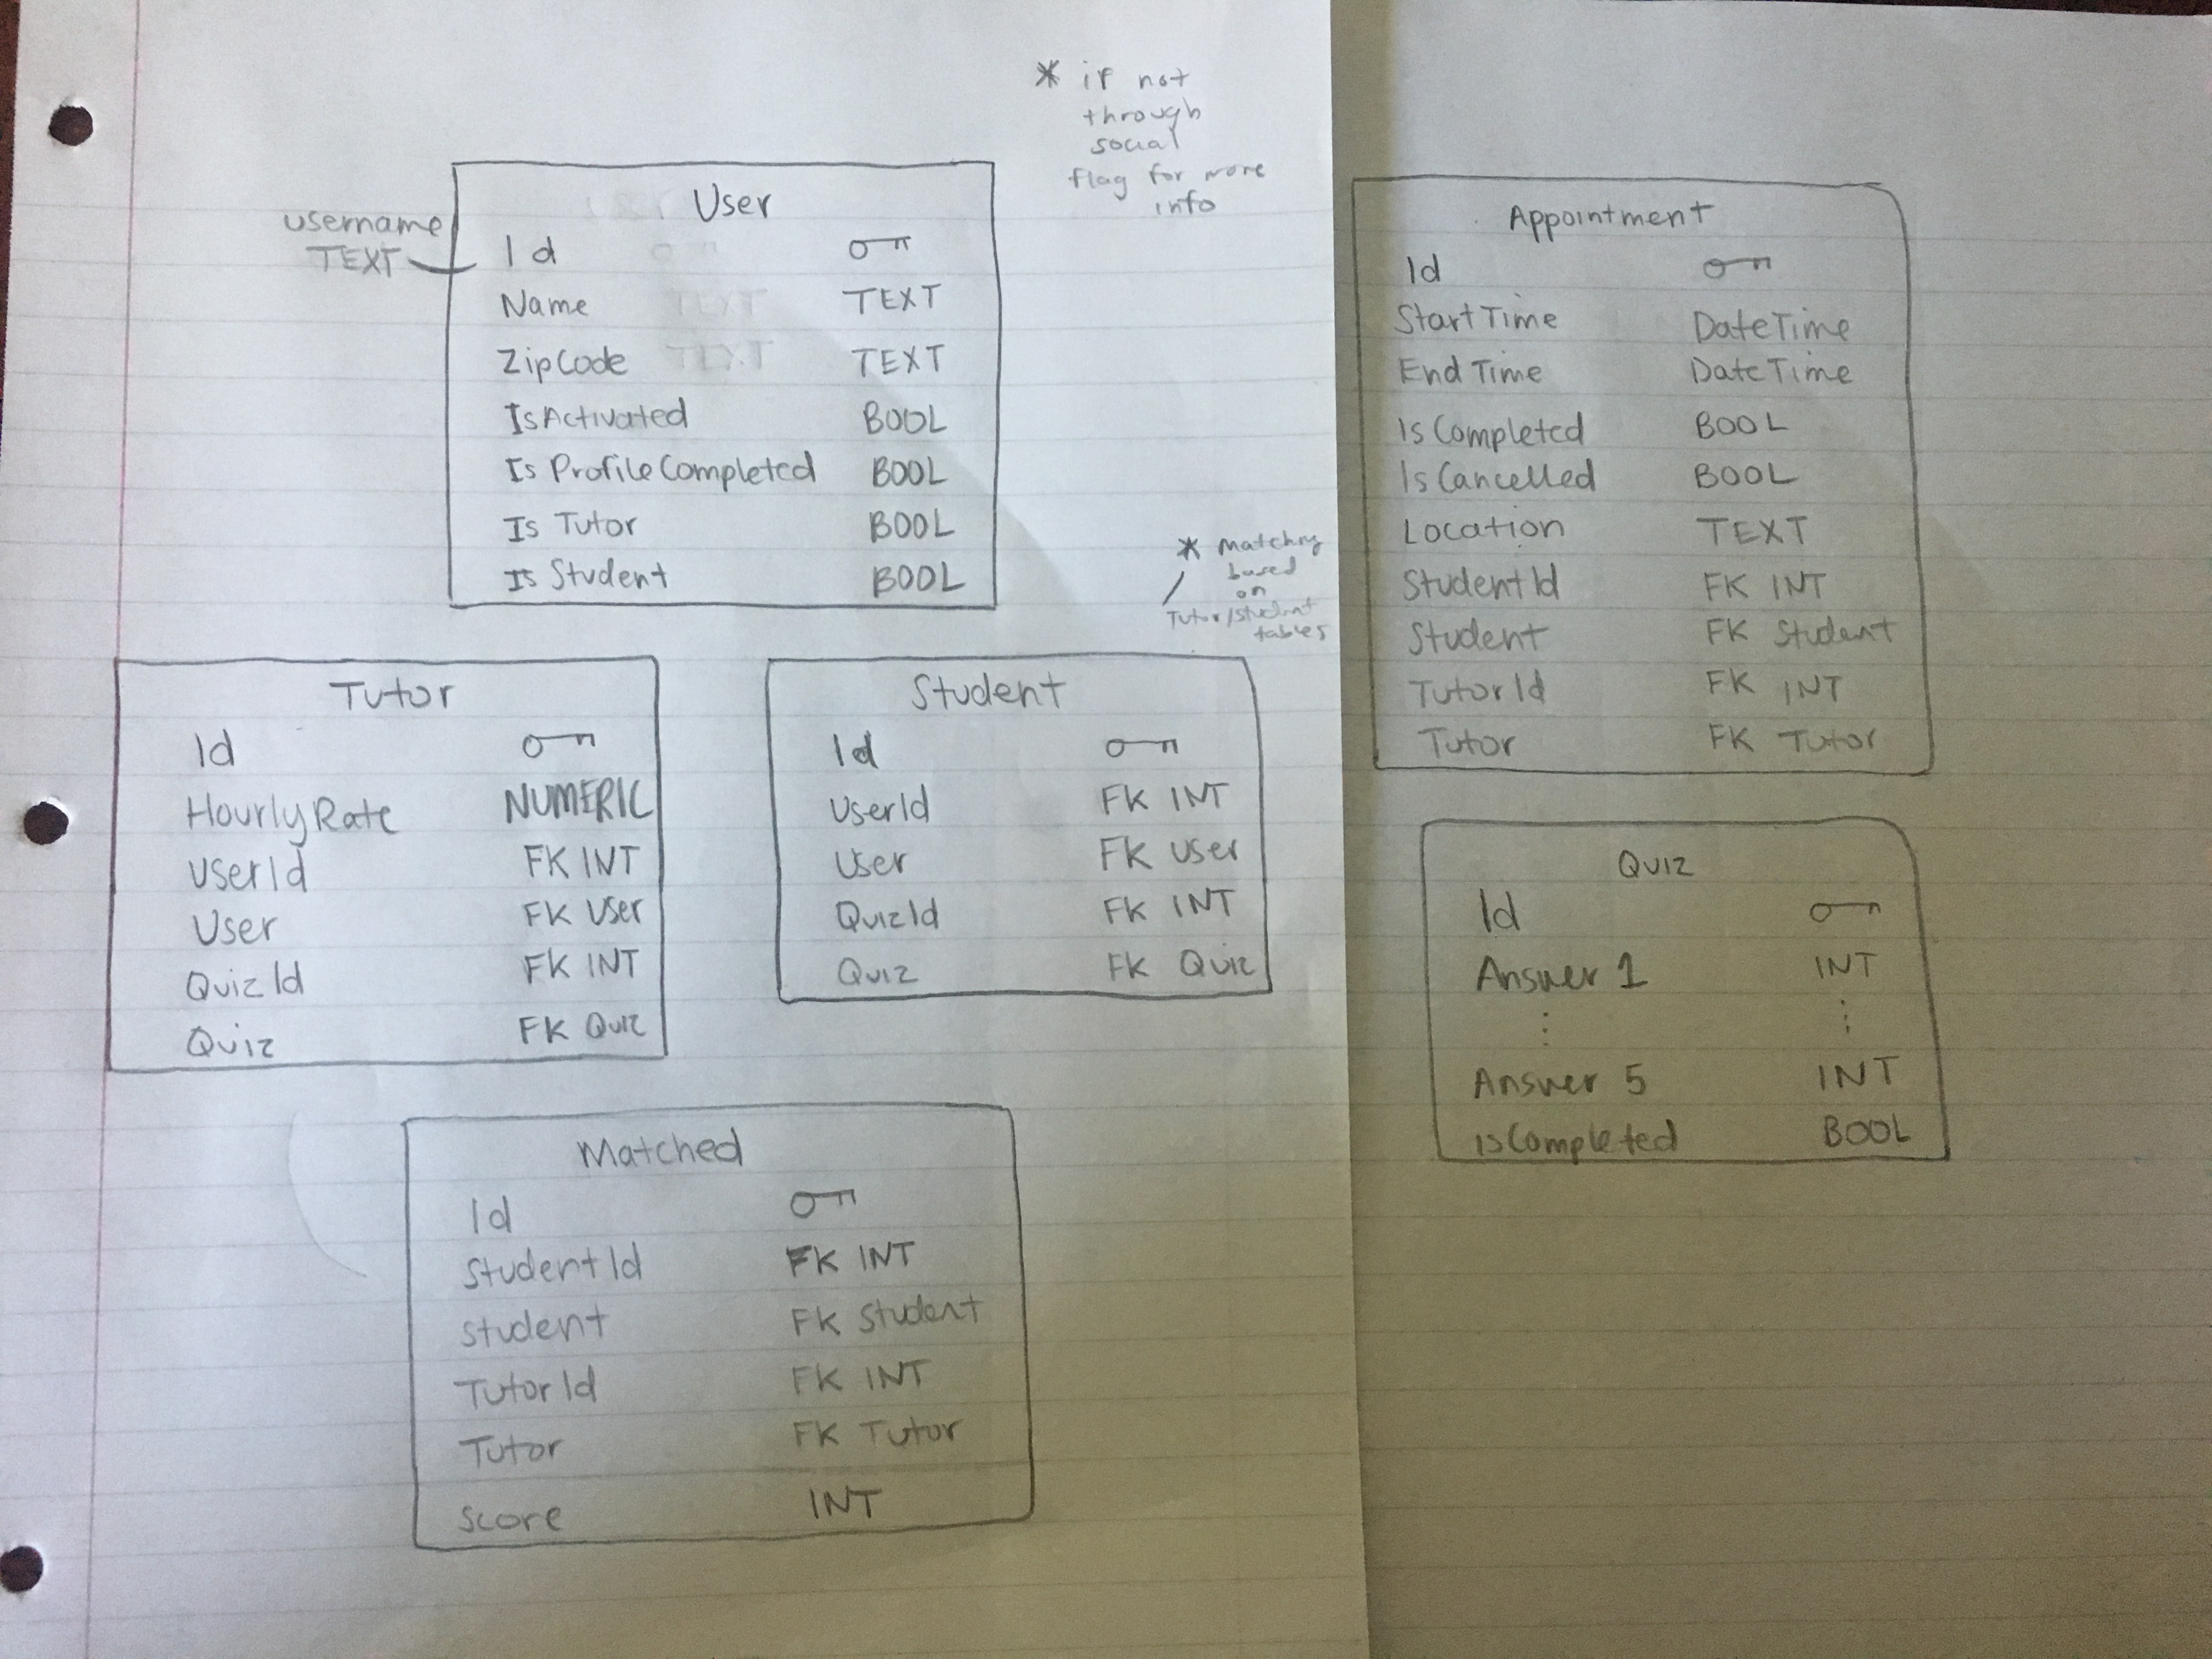 * if not
through
social
flag for more
info
username
TEXT
User
Id
Name TEXT
ZipCode TEXT
IsActivated BOOL
Is ProfileCompleted BOOL
Is Tutor BOOL
Is Student BOOL
* matching
based
on
Tutor/student
tables
Tutor
Id
HourlyRate NUMERIC
UserId FK INT
User FK User
QuizId FK INT
Quiz FK Quiz
Student
Id
UserId FK INT
User FK User
QuizId FK INT
Quiz FK Quiz
Matched
Id
StudentId FK INT
Student FK Student
TutorId FK INT
Tutor FK Tutor
Score INT
Appointment
Id
StartTime DateTime
EndTime DateTime
IsCompleted BOOL
IsCancelled BOOL
Location TEXT
StudentId FK INT
Student FK Student
TutorId FK INT
Tutor FK Tutor
Quiz
Id
Answer 1 INT
⋮ ⋮
Answer 5 INT
IsCompleted BOOL